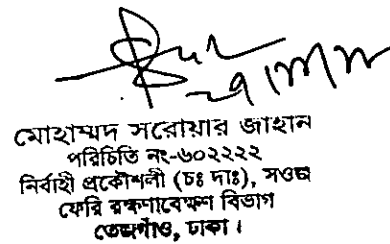 মোহাম্মদ সরোয়ার জাহান
পরিচিতি নং-৬০২২২২
নির্বাহী প্রকৌশলী (চঃ দাঃ), সওজ
ফেরি রক্ষণাবেক্ষণ বিভাগ
তেজগাঁও, ঢাকা।